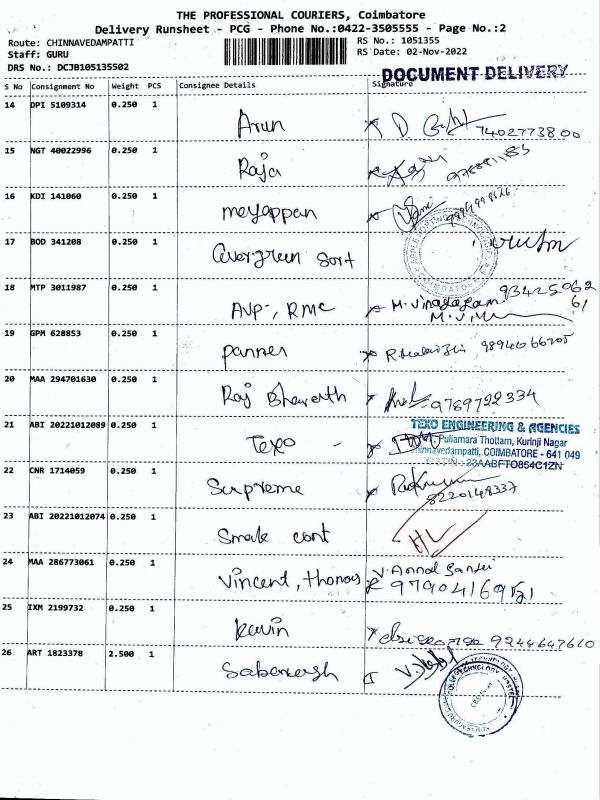 THE PROFESSIONAL COURIERS, Coimbatore
Delivery Runsheet - PCG - Phone No.:0422-3505555 - Page No.:2
Route: CHINNAVEDAMPATTI RS No.: 1051355
Staff: GURU RS Date: 02-Nov-2022
DRS No.: DCJB105135502
DOCUMENT DELIVERY
S No Consignment No Weight PCS Consignee Details Signature
14 DPI 5109314 0.250 1
Arun 7402773800
15 NGT 40022996 0.250 1
Raja
16 KDI 141060 0.250 1
meyappan
17 BOD 341208 0.250 1
Evergreen Sort
COIMBATORE
18 MTP 3011987 0.250 1
AVP-, RMC M. Vinayagam 93425062
61
19 GPM 628853 0.250 1
panner
20 MAA 294701630 0.250 1
Raj Bharath 9789722334
21 ABI 20221012089 0.250 1
TEXO ENGINEERING & AGENCIES
Texo - Puliamara Thottam, Kurinji Nagar
Chinnavedampatti, COIMBATORE - 641 049
22 CNR 1714059 0.250 1
Supreme
8220149337
23 ABI 20221012074 0.250 1
24 MAA 286773061 0.250 1
Vincent, thomas
25 IXM 2199732 0.250 1
Kavin 9244647610
26 ART 1823378 2.500 1